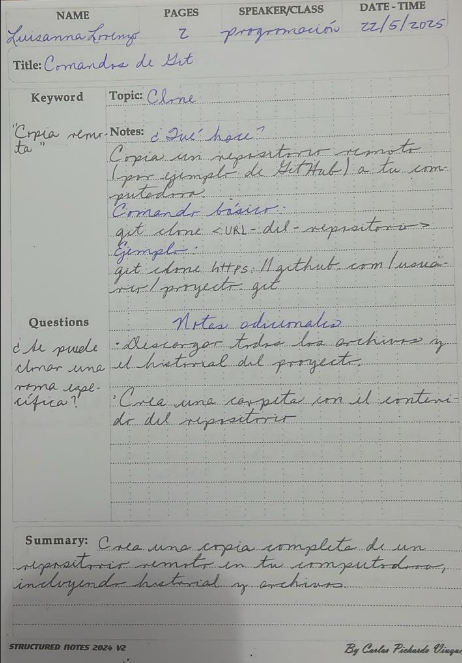 NAME PAGES SPEAKER/CLASS DATE - TIME
Luisanna Lorenzo 2 programación 22/5/2025
Title: Comandos de Git
Keyword Topic: Clone
"Copia remo- Notes: ¿Qué hace?
ta" Copia un repositorio remoto
(por ejemplo de GitHub) a tu com-
putadora.
Comando básico:
git clone <URL-del-repositorio>
Ejemplo:
git clone https://github.com/usua-
rio/proyecto.git
Questions Notas adicionales
¿Se puede · Descargar todos los archivos y
clonar una el historial del proyecto.
rama espe-
cífica? · Crea una carpeta con el conteni-
do del repositorio
Summary: Crea una copia completa de un
repositorio remoto en tu computadora,
incluyendo historial y archivos.
STRUCTURED NOTES 2024 V2 By Carlos Pichardo Viuque